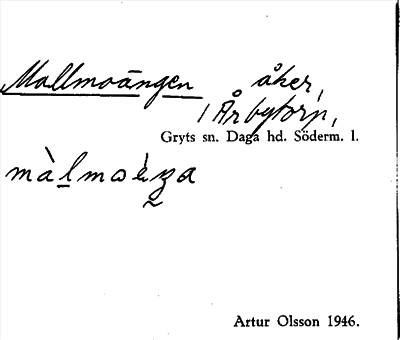 Mallmoängen åker,
i Årbytorp,
Gryts sn. Daga hd. Söderm. l.
Artur Olsson 1946.